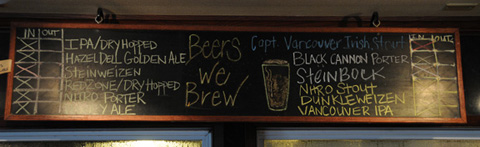 IN OUT
IPA/DRY HOPPED
HAZEL DELL GOLDEN ALE
STEINWEIZEN
RED ZONE/DRY HOPPED
NITRO PORTER
ALE
Beers
We
Brew
Capt. Vancouver Irish Stout
BLACK CANNON PORTER
STEINBOCK
NITRO STOUT
DUNKLEWEIZEN
VANCOUVER IPA
IN OUT